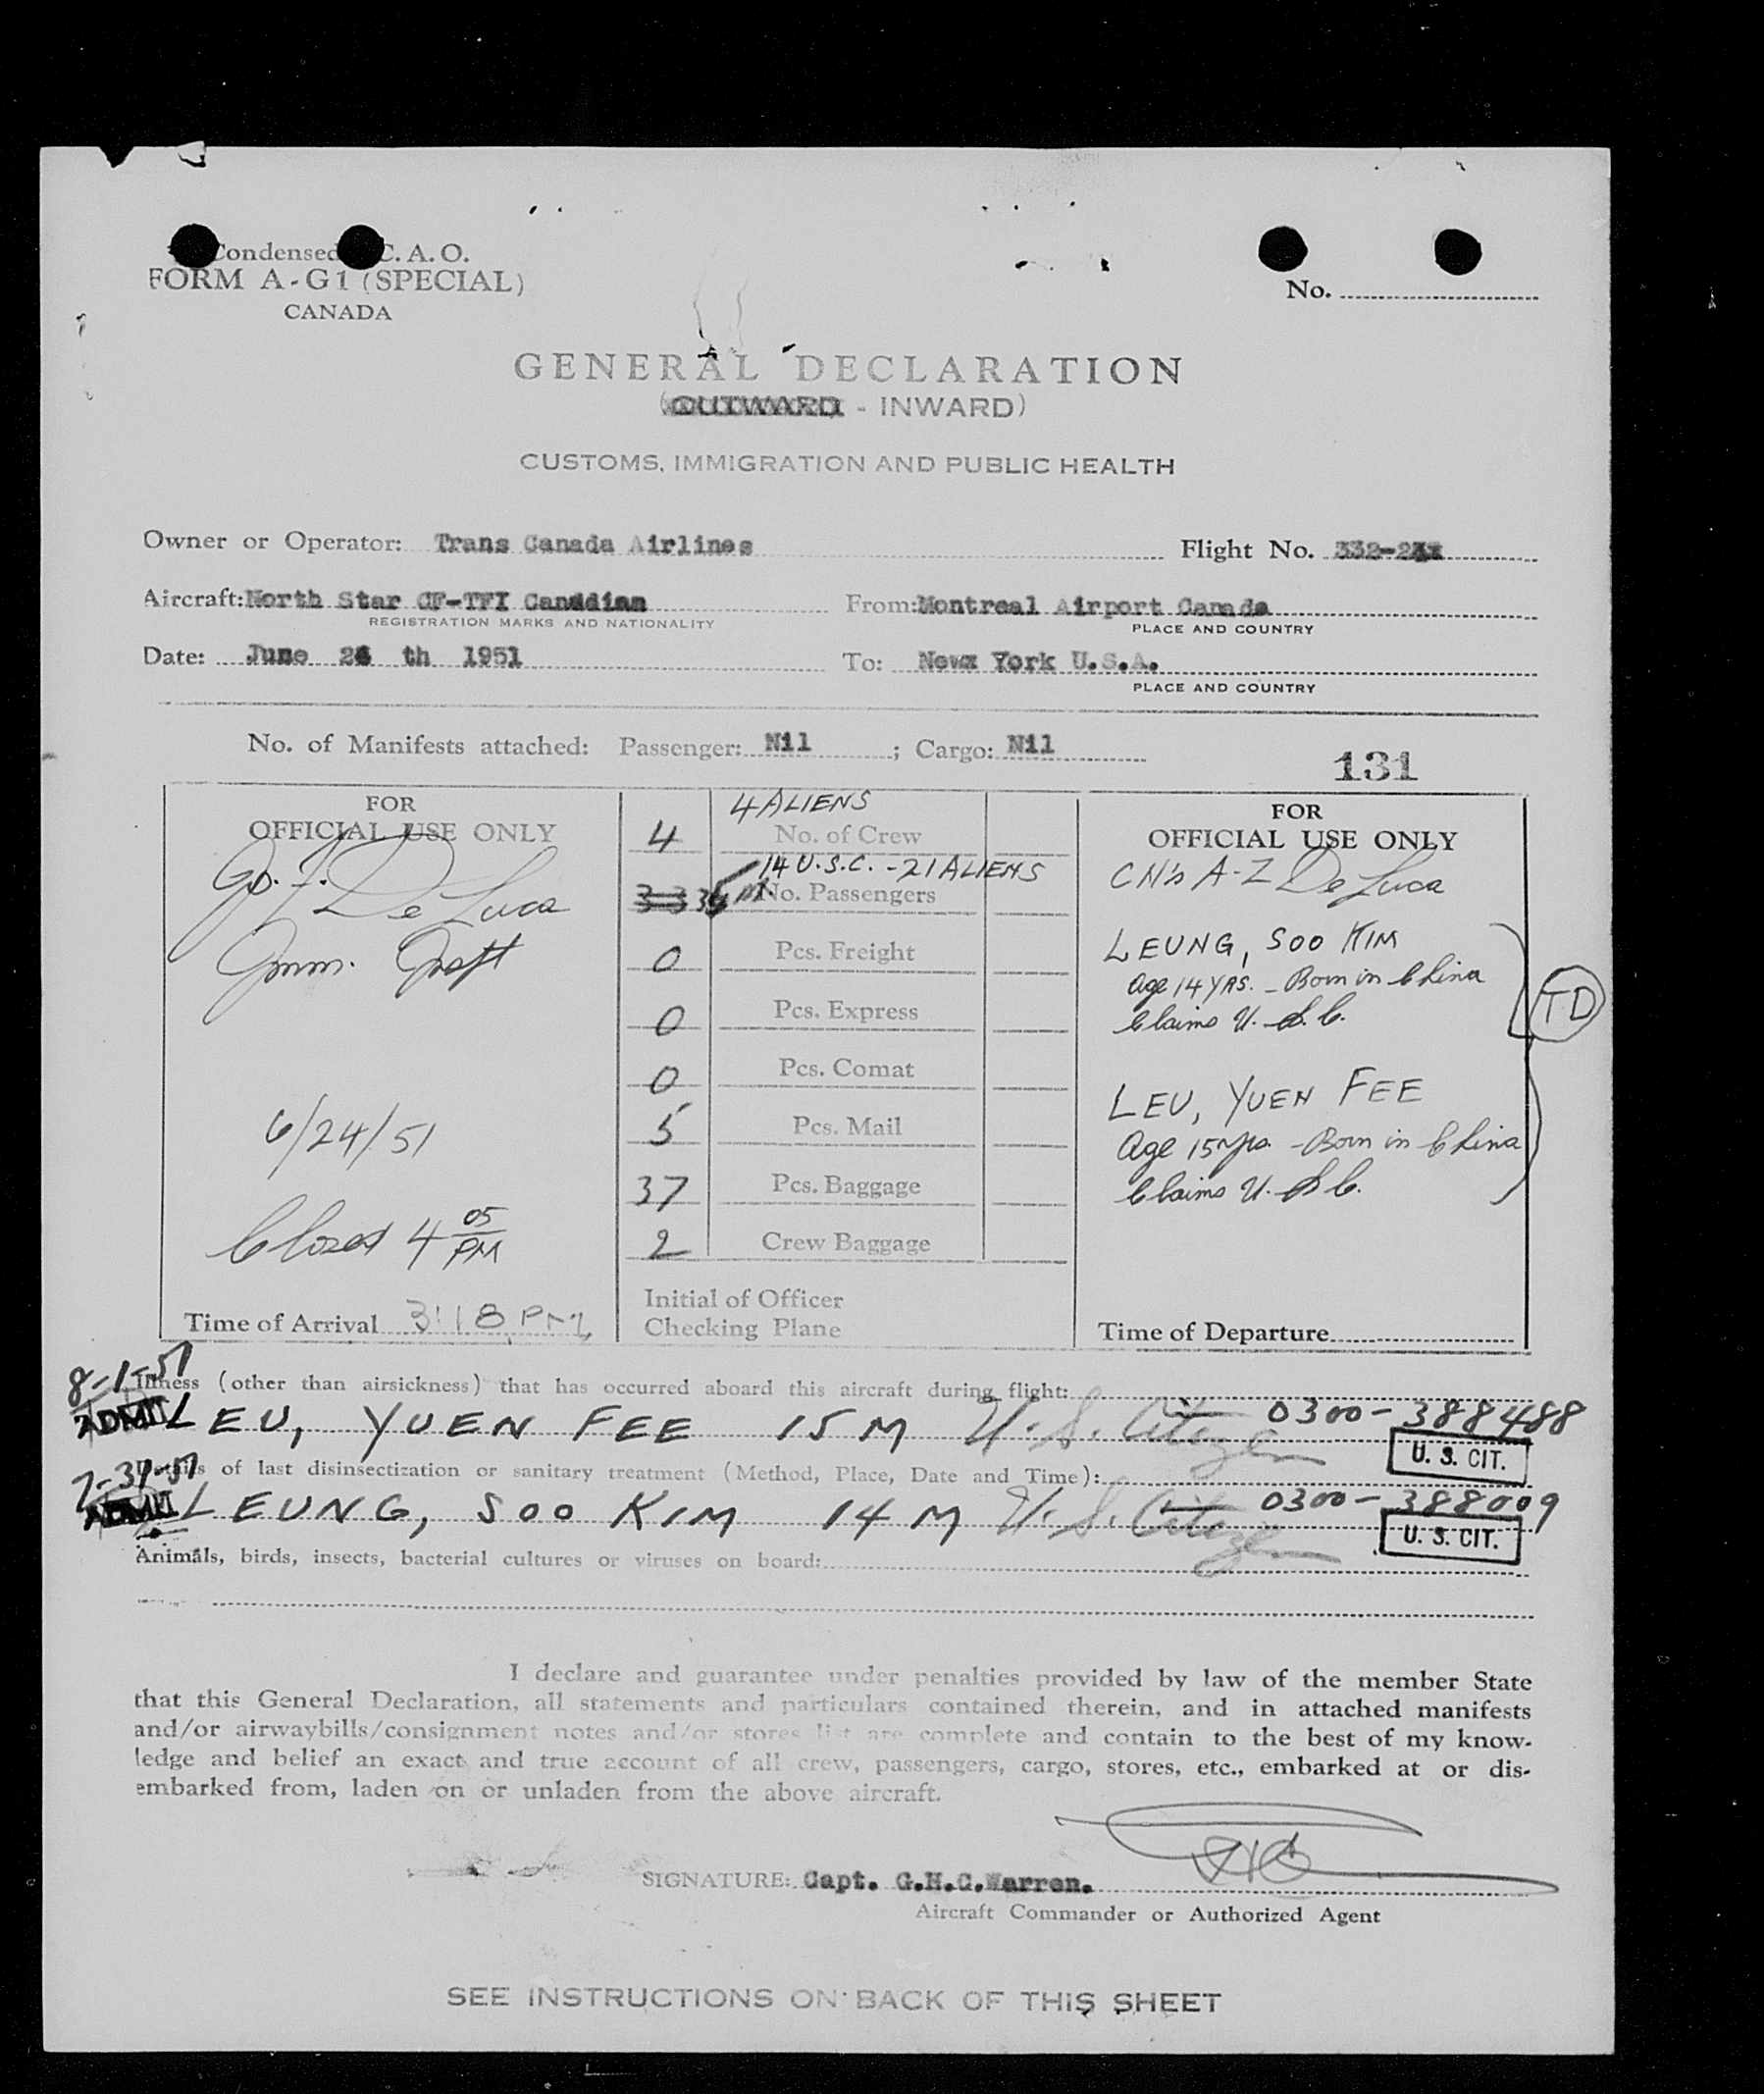 Condensed C. A. O.
FORM A-G1 (SPECIAL)
CANADA
No.
GENERAL DECLARATION
(OUTWARD - INWARD)
CUSTOMS, IMMIGRATION AND PUBLIC HEALTH
Owner or Operator: Trans Canada Airlines Flight No. 332-
Aircraft: North Star CF-TFI Canadian From: Montreal Airport Canada
REGISTRATION MARKS AND NATIONALITY PLACE AND COUNTRY
Date: June 24 th 1951 To: Newx York U.S.A.
PLACE AND COUNTRY
No. of Manifests attached: Passenger: Nil ; Cargo: Nil
131
FOR
OFFICIAL USE ONLY
De Luca
Imm. Insp't
6/24/51
Closed 4 05 PM
Time of Arrival 3:18 PM
4 ALIENS
4 No. of Crew
14 U.S.C. - 21 ALIENS
33 35 No. Passengers
0 Pcs. Freight
0 Pcs. Express
0 Pcs. Comat
5 Pcs. Mail
37 Pcs. Baggage
2 Crew Baggage
Initial of Officer
Checking Plane
FOR
OFFICIAL USE ONLY
A-Z De Luca
LEUNG, SOO KIM
Age 14 YRS. - Born in China
Claims U. S. C.
TD
LEU, YUEN FEE
Age 15 yrs - Born in China
Claims U. S. C.
Time of Departure
8-1-51
Illness (other than airsickness) that has occurred aboard this aircraft during flight:
ADMIT LEU, YUEN FEE 15 M U. S. Citizen 0300-388488
U. S. CIT.
Details of last disinsectization or sanitary treatment (Method, Place, Date and Time):
ADMIT LEUNG, SOO KIM 14 M U. S. Citizen 0300-388009
U. S. CIT.
Animals, birds, insects, bacterial cultures or viruses on board:
I declare and guarantee under penalties provided by law of the member State
that this General Declaration, all statements and particulars contained therein, and in attached manifests
and/or airwaybills/consignment notes and/or stores list are complete and contain to the best of my know-
ledge and belief an exact and true account of all crew, passengers, cargo, stores, etc., embarked at or dis-
embarked from, laden on or unladen from the above aircraft.
SIGNATURE: Capt. G.H.C.Warren.
Aircraft Commander or Authorized Agent
SEE INSTRUCTIONS ON BACK OF THIS SHEET